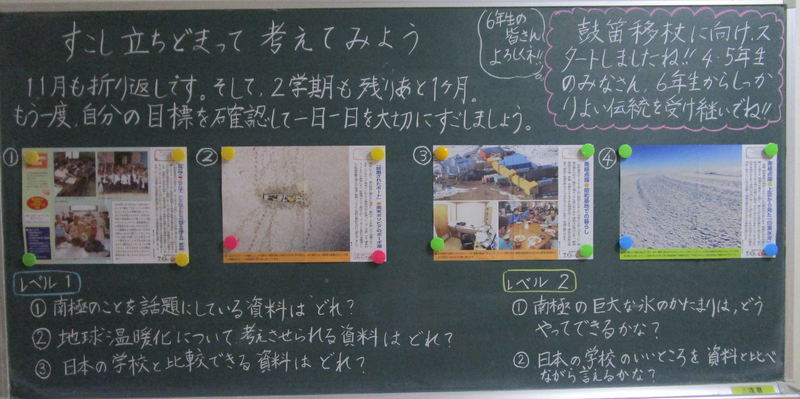 すこし立ちどまって考えてみよう
11月も折り返しです。そして、2学期も残りあと1ヶ月。
もう一度、自分の目標を確認して一日一日を大切にすごしましょう。
6年生の
皆さん
よろしくネ!!
鼓笛移杖に向け、ス
タートしましたね!! 4・5年生
のみなさん、6年生からしっか
りよい伝統を受け継いでね!!
①
②
③
④
レベル1
① 南極のことを話題にしている資料はどれ?
② 地球温暖化について考えさせられる資料はどれ?
③ 日本の学校と比較できる資料はどれ?
レベル2
① 南極の巨大な氷のかたまりは、どう
やってできるかな?
② 日本の学校のいいところを資料と比べ
ながら言えるかな?
注意